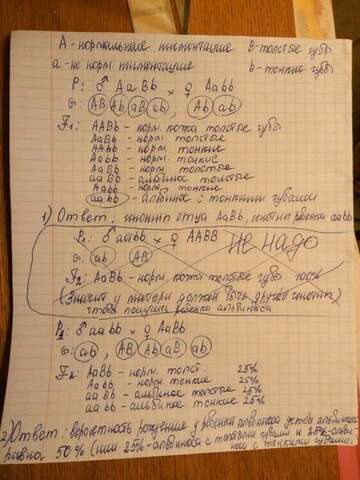 А - нормальная пигментация В-толстые губы
а - не норм. пигментация b-тонкие губы
P: ♂ AaBb × ♀ Aabb
G: AB Ab aB ab, Ab ab
F1: AABb - норм. кожа толстые губы
AaBb - норм толстые
AAbb - норм. тонкие
Aabb - норм. тонкие
AaBb - норм толстые
aaBb - альбинос толстые
Aabb - норм. тонкие
aabb - альбинос с тонкими губами
1) Ответ: генотип отца AaBb, генотип ребенка aabb
P2: ♂ aabb × ♀ AABB не надо
G: ab AB
F2: AaBb - норм кожа толстые губы 100%
(Значит у матери должен быть другой генотип)
чтобы получить ребенка альбиноса
P2 ♂ aabb × ♀ AaBb
G: ab, AB Ab aB ab
F2: AaBb - норм. толст. 25%
Aabb - норм тонкие 25%
aaBb - альбинос толстые 25%
aabb - альбинос тонкие 25%
2) Ответ: вероятность рождения у ребенка альбиноса детей альбиносов
равна 50% (или 25%-альбиноса с толстыми губами и 25%-альби
носа с тонкими губами)